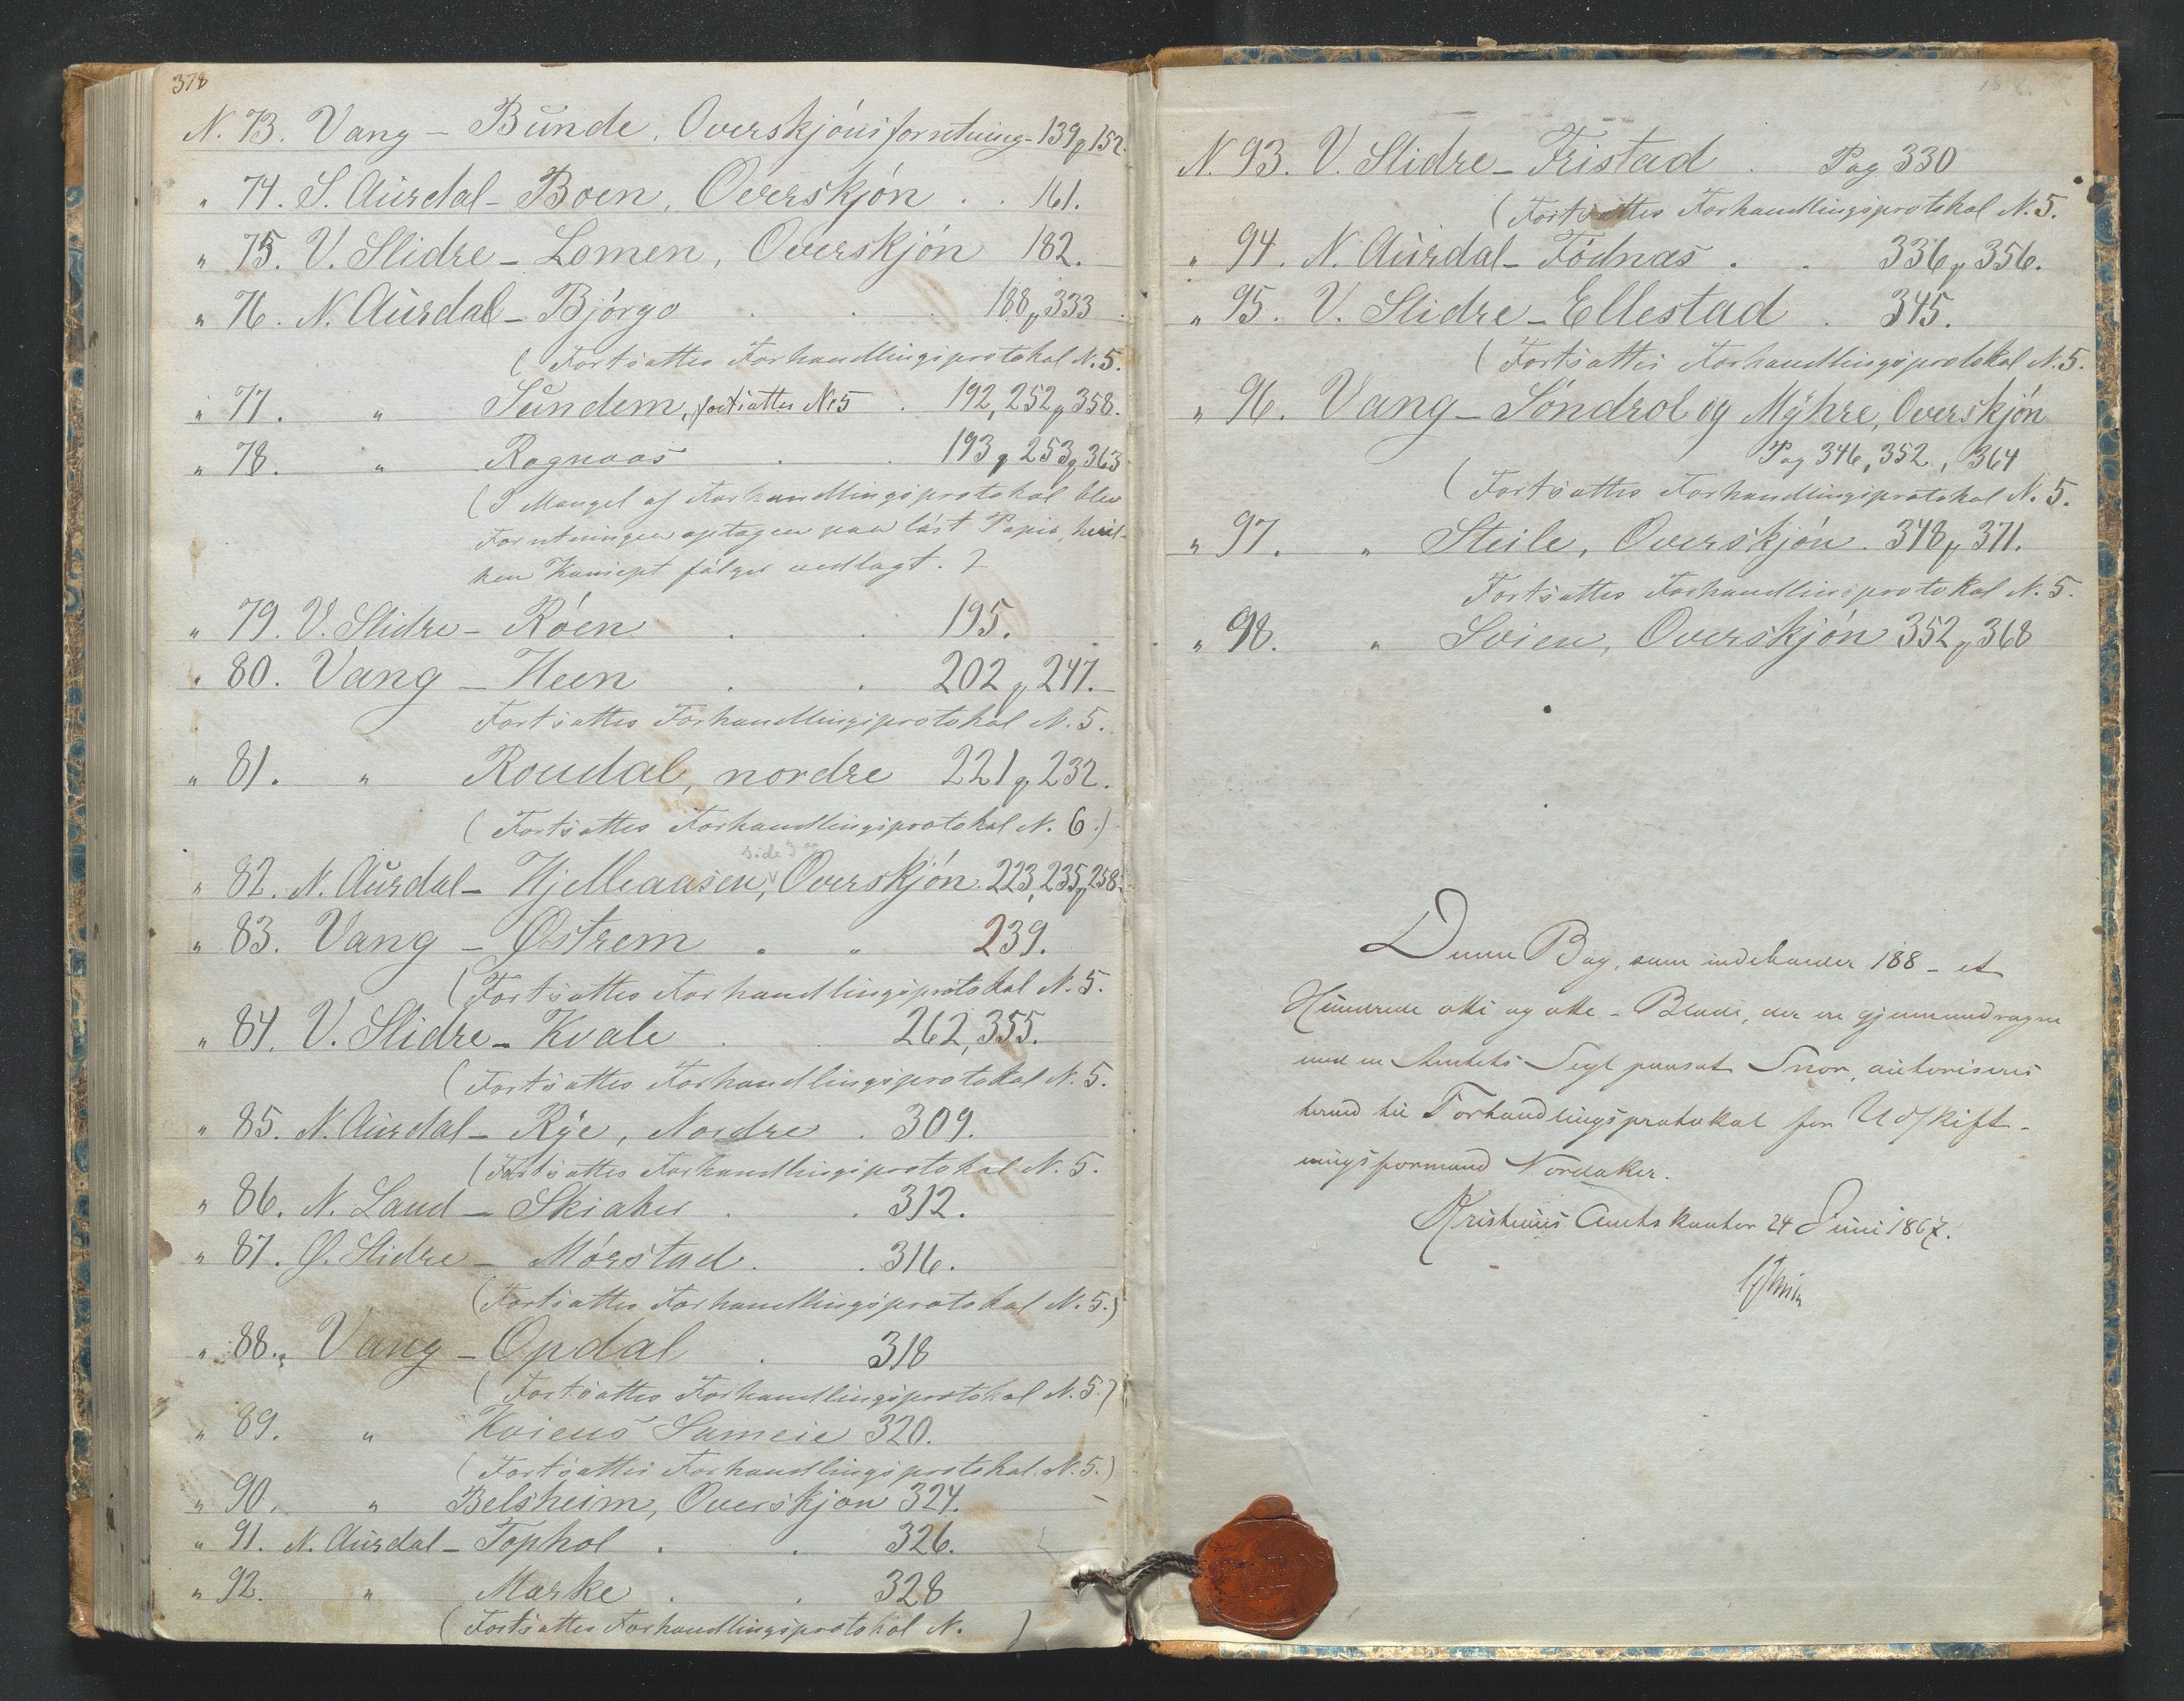 378
N. 73. Vang – Bunde, Overskjønsforretning – 139 & 152.
" 74. S. Aurdal – Boen, Overskjøn . . 161.
" 75. V. Slidre – Lomen, Overskjøn 182.
" 76. N. Aurdal – Bjørgo . . . 188 & 333
(Fortsættes Forhandlingsprotokol N. 5.
" 77. " Sundem, fortsættes No 5 . 192, 252 & 358.
" 78. " Rognaas . . 193 & 253 & 363
(I Mangel af Forhandlingsprotokol blev
Forretningen optagen paa løst Papir, hvil-
ken Koncept følger vedlagt.)
" 79. V. Slidre – Røen . . 195.
" 80. Vang – Heen . . 202 & 247.
Fortsættes Forhandlingsprotokol N. 5.
" 81. " Roudal, nordre 221 & 232.
(Fortsættes Forhandlingsprotokol N. 6.)
side 3
" 82. N. Aurdal – Hjelleaasen, Overskjøn. 223, 235 & 258.
" 83. Vang – Østrem . . 239.
(Fortsættes Forhandlingsprotokol N. 5.
" 84. V. Slidre – Kvale . . 262, 355.
(Fortsættes Forhandlingsprotokol N. 5.
" 85. N. Aurdal – Rye, Nordre . 309.
(Fortsættes Forhandlingsprotokol N. 5.
" 86. N. Land – Skiaker . . 312.
" 87. Ø. Slidre – Mørstad . . 316.
(Fortsættes Forhandlingsprotokol N. 5.)
" 88. Vang – Opdal . 318
(Fortsættes Forhandlingsprotokol N. 5.)
" 89. " Kviens Sameie 320.
(Fortsættes Forhandlingsprotokol N. 5.)
" 90. " Belsheim, Overskjøn 324.
" 91. N. Aurdal – Tophol . . 326.
" 92. " Marke . . 328
(Fortsættes Forhandlingsprotokol N. )
188.
N. 93. V. Slidre – Fristad . Pag. 330
(Fortsættes Forhandlingsprotokol N. 5.
" 94. N. Aurdal – Fødnæs . . 336 & 356.
" 95. V. Slidre – Ellestad . 345.
(Fortsættes Forhandlingsprotokol N. 5.
" 96. Vang – Søndrol og Myhre, Overskjøn
Pag 346, 352, 364
(Fortsættes Forhandlingsprotokol N. 5.
" 97. " Steile, Overskjøn. 348 & 371.
Fortsættes Forhandlingsprotokol N. 5.
" 98. " Svien, Overskjøn 352 & 368
Denne Bog, som indeholder 188 – et
Hundrede otti og otte – Blade, der er gjennemdragne
med en Amtets Segl paasat Snor, autoriseres
herved til Forhandlingsprotokol for Udskift-
ningsformand Nordaker.
Kristians Amtskontor 24 Juni 1867.